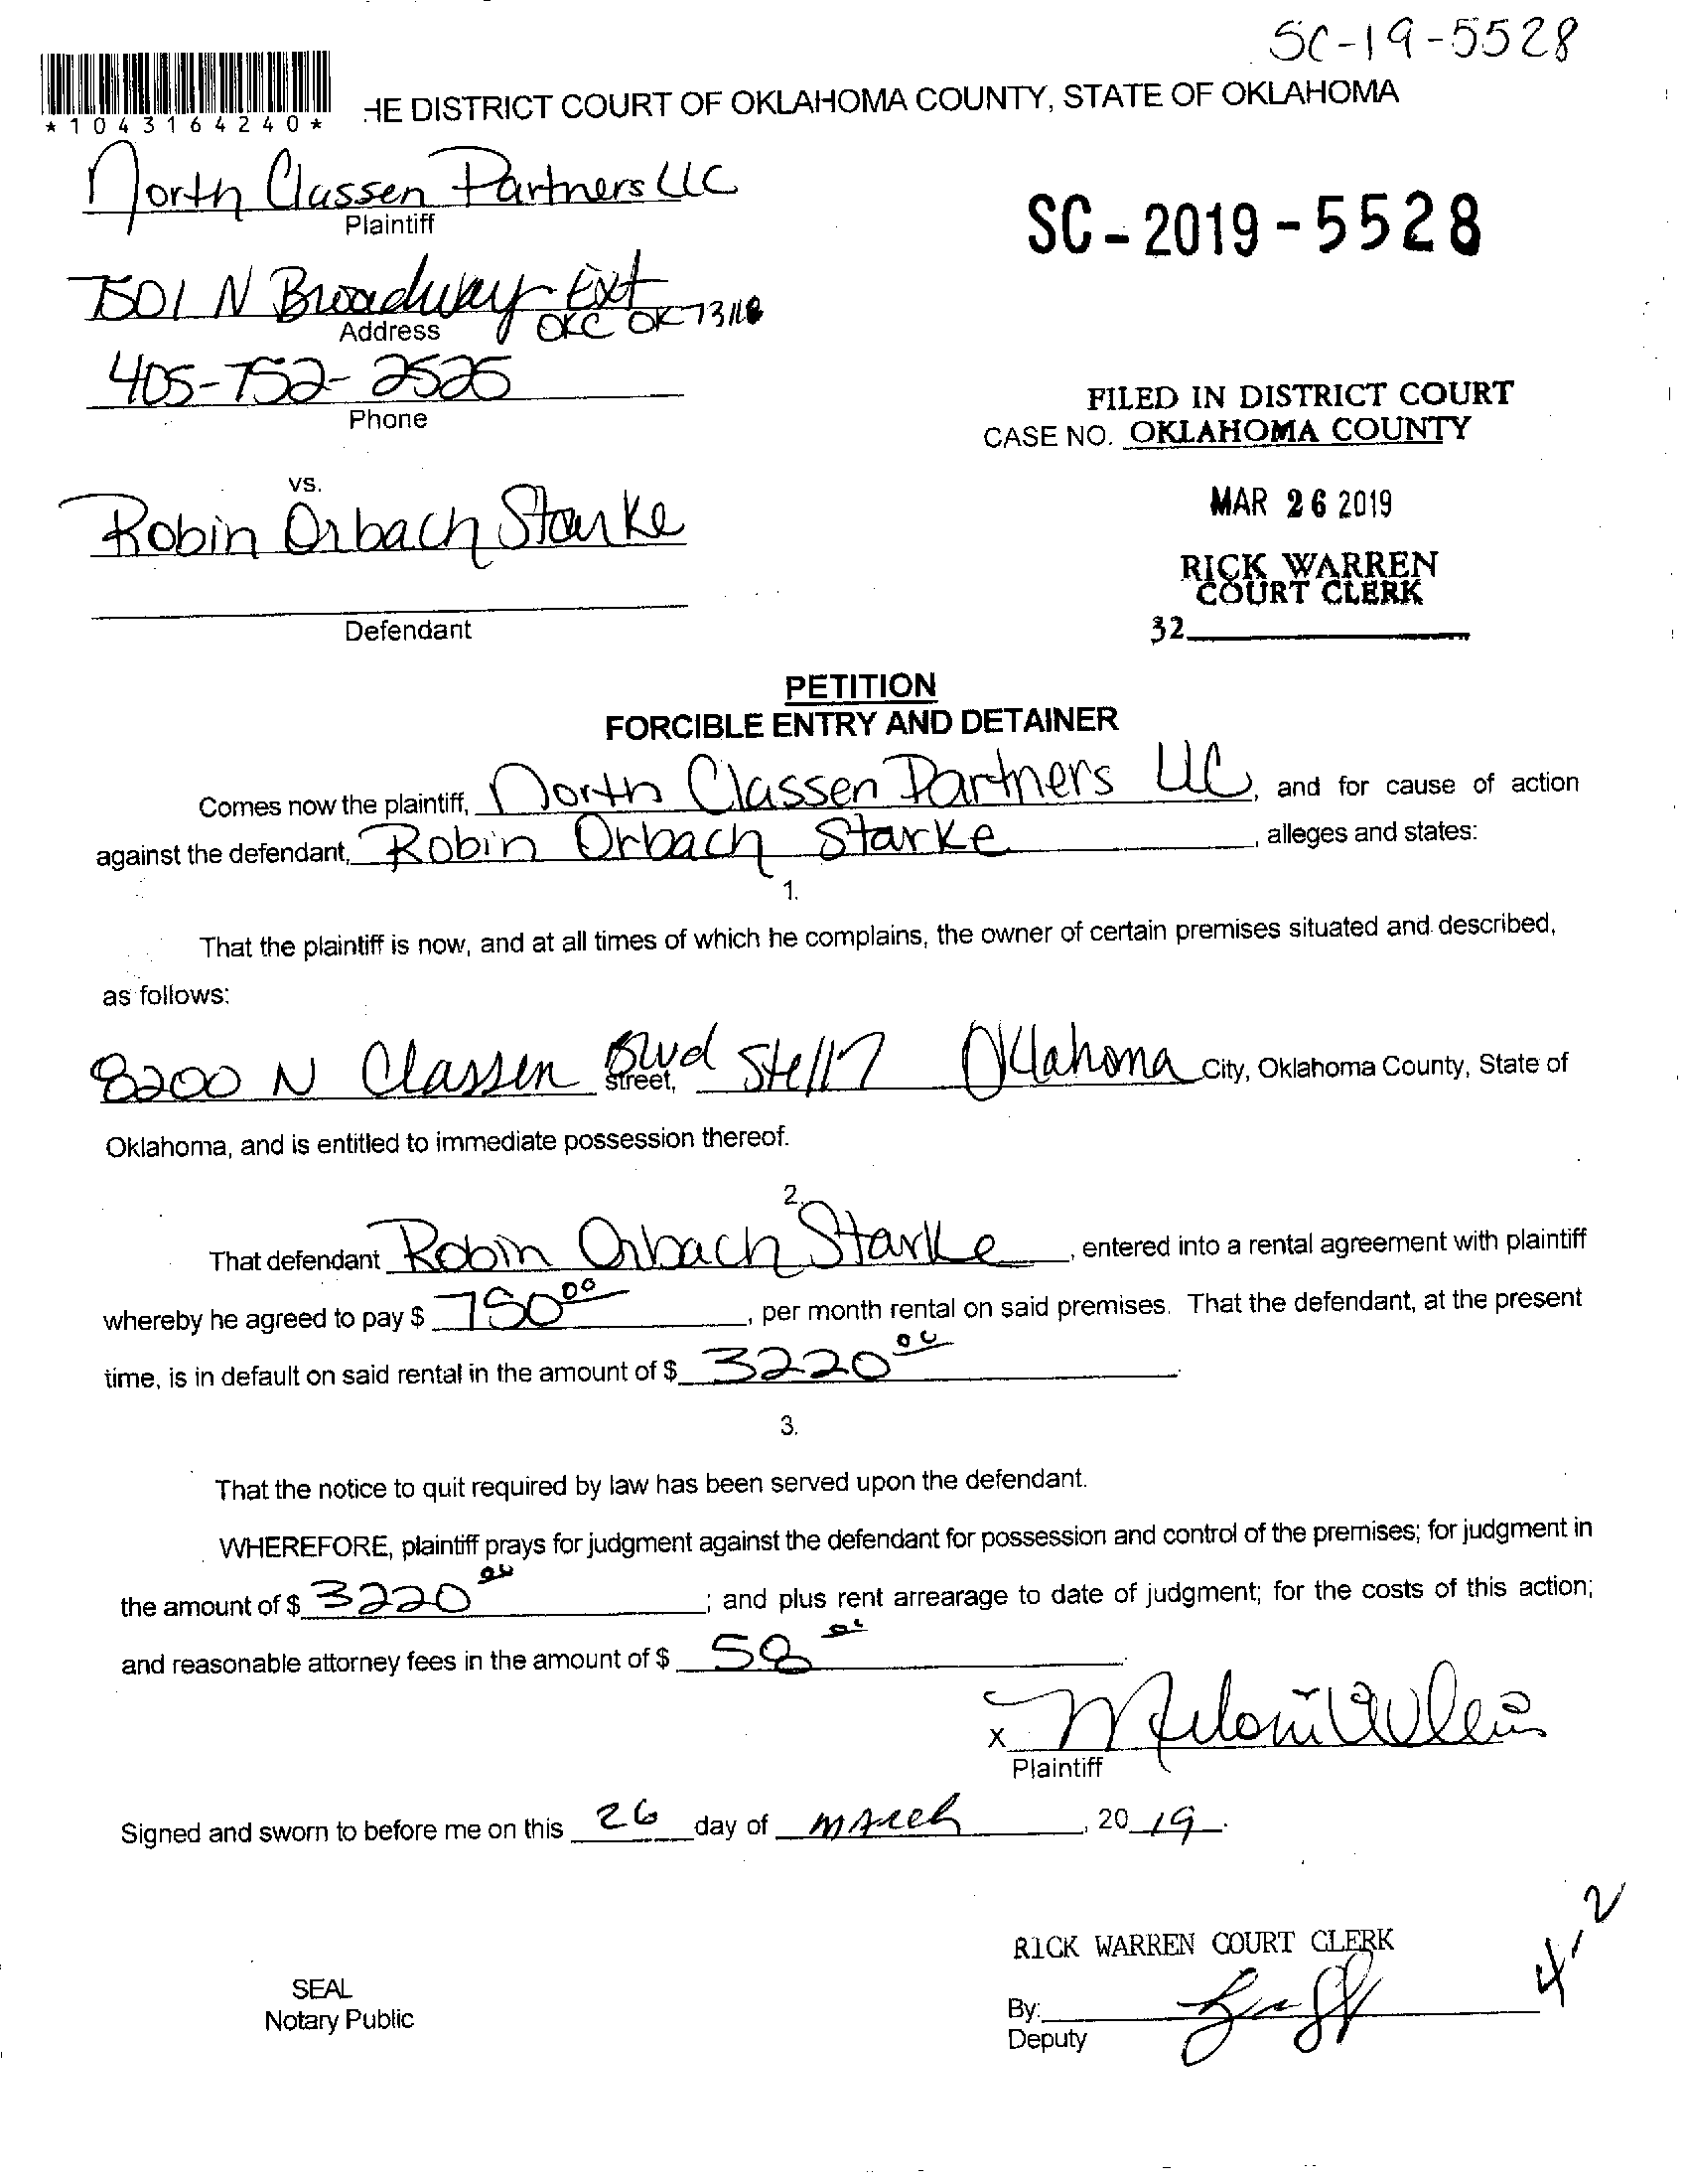 SC-19-5528
*1043164240*
HE DISTRICT COURT OF OKLAHOMA COUNTY, STATE OF OKLAHOMA
North Classen Partners LLC
Plaintiff
SC-2019-5528
7501 N Broadway Ext
Address
OKC OK 73116
405-752-2525
Phone
FILED IN DISTRICT COURT
CASE NO. OKLAHOMA COUNTY
vs.
MAR 26 2019
Robin Orbach Starke
RICK WARREN
COURT CLERK
Defendant
32
PETITION
FORCIBLE ENTRY AND DETAINER
Comes now the plaintiff, North Classen Partners LLC, and for cause of action
against the defendant, Robin Orbach Starke, alleges and states:
1.
That the plaintiff is now, and at all times of which he complains, the owner of certain premises situated and described,
as follows:
8200 N Classen Blvd street, Ste 117 Oklahoma City, Oklahoma County, State of
Oklahoma, and is entitled to immediate possession thereof.
2.
That defendant Robin Orbach Starke, entered into a rental agreement with plaintiff
whereby he agreed to pay $ 750 00, per month rental on said premises. That the defendant, at the present
time, is in default on said rental in the amount of $ 3220 00.
3.
That the notice to quit required by law has been served upon the defendant.
WHEREFORE, plaintiff prays for judgment against the defendant for possession and control of the premises; for judgment in
the amount of $ 3220 00; and plus rent arrearage to date of judgment; for the costs of this action;
and reasonable attorney fees in the amount of $ 58 00.
X
Plaintiff
Signed and sworn to before me on this 26 day of March, 2019.
4-2
RICK WARREN COURT CLERK
SEAL
Notary Public
By:
Deputy